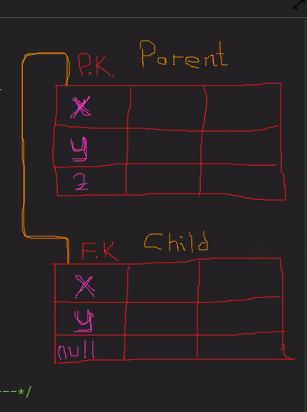 P.K. Parent
x
y
z
F.K Child
x
y
null
---*/